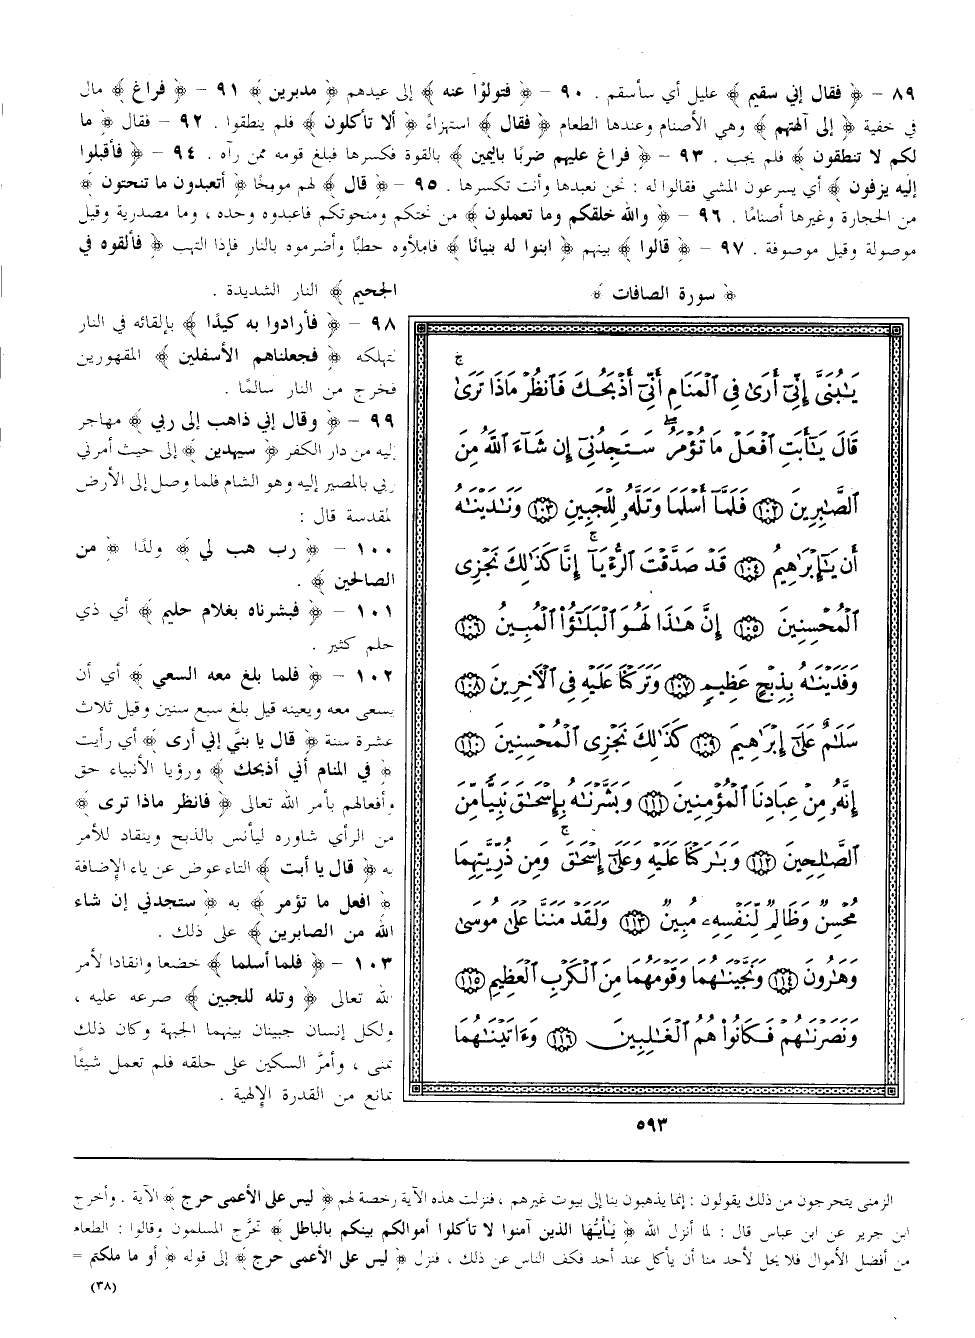 ٨٩ - ﴿ فقال إني سقيم ﴾ عليل أي سأسقم . ٩٠ - ﴿ فتولَّوْا عنه ﴾ إلى عيدهم ﴿ مدبرين ﴾ ٩١ - ﴿ فراغ ﴾ مال
في خفية ﴿ إلى آلهتهم ﴾ وهي الأصنام وعندها الطعام ﴿ فقال ﴾ استهزاءً ﴿ ألا تأكلون ﴾ فلم ينطقوا . ٩٢ - فقال ﴿ ما
لكم لا تنطقون ﴾ فلم يجب . ٩٣ - ﴿ فراغ عليهم ضربًا باليمين ﴾ بالقوة فكسرها فبلغ قومه ممن رآه . ٩٤ - ﴿ فأقبلوا
إليه يزفون ﴾ أي يسرعون المشي فقالوا له : نحن نعبدها وأنت تكسرها . ٩٥ - ﴿ قال ﴾ لهم موبخًا ﴿ أتعبدون ما تنحتون ﴾
من الحجارة وغيرها أصنامًا . ٩٦ - ﴿ والله خلقكم وما تعملون ﴾ من نحتكم ومنحوتكم فاعبدوه وحده ، وما مصدرية وقيل
موصولة وقيل موصوفة . ٩٧ - ﴿ قالوا ﴾ بينهم ﴿ ابنوا له بنيانًا ﴾ فاملأوه حطبًا وأضرموه بالنار فإذا التهب ﴿ فألقوه في
الجحيم ﴾ النار الشديدة .
٩٨ - ﴿ فأرادوا به كيدًا ﴾ بإلقائه في النار
لتهلكه ﴿ فجعلناهم الأسفلين ﴾ المقهورين
فخرج من النار سالمًا .
٩٩ - ﴿ وقال إني ذاهب إلى ربي ﴾ مهاجر
إليه من دار الكفر ﴿ سيهدين ﴾ إلى حيث أمرني
ربي بالمصير إليه وهو الشام فلما وصل إلى الأرض
لمقدسة قال :
١٠٠ - ﴿ رب هب لي ﴾ ولدًا ﴿ من
الصالحين ﴾ .
١٠١ - ﴿ فبشرناه بغلام حليم ﴾ أي ذي
حلم كثير .
١٠٢ - ﴿ فلما بلغ معه السعي ﴾ أي أن
يسعى معه ويعينه قيل بلغ سبع سنين وقيل ثلاث
عشرة سنة ﴿ قال يا بنيَّ إني أرى ﴾ أي رأيت
﴿ في المنام أني أذبحك ﴾ ورؤيا الأنبياء حق
وأفعالهم بأمر الله تعالى ﴿ فانظر ماذا ترى ﴾
من الرأي شاوره ليأنس بالذبح وينقاد للأمر
به ﴿ قال يا أبت ﴾ التاء عوض عن ياء الإضافة
﴿ افعل ما تؤمر ﴾ به ﴿ ستجدني إن شاء
الله من الصابرين ﴾ على ذلك .
١٠٣ - ﴿ فلما أسلما ﴾ خضعا وانقادا لأمر
لله تعالى ﴿ وتله للجبين ﴾ صرعه عليه ،
ولكل إنسان جبينان بينهما الجبهة وكان ذلك
بمنى ، وأمرَّ السكين على حلقه فلم تعمل شيئًا
بمانع من القدرة الإلهية .
﴿ سورة الصافات ﴾
يَٰبُنَىَّ إِنِّىٓ أَرَىٰ فِى ٱلْمَنَامِ أَنِّىٓ أَذْبَحُكَ فَٱنظُرْ مَاذَا تَرَىٰ ۚ
قَالَ يَٰٓأَبَتِ ٱفْعَلْ مَا تُؤْمَرُ ۖ سَتَجِدُنِىٓ إِن شَآءَ ٱللَّهُ مِنَ
ٱلصَّٰبِرِينَ ١٠٢ فَلَمَّآ أَسْلَمَا وَتَلَّهُۥ لِلْجَبِينِ ١٠٣ وَنَٰدَيْنَٰهُ
أَن يَٰٓإِبْرَٰهِيمُ ١٠٤ قَدْ صَدَّقْتَ ٱلرُّءْيَآ ۚ إِنَّا كَذَٰلِكَ نَجْزِى
ٱلْمُحْسِنِينَ ١٠٥ إِنَّ هَٰذَا لَهُوَ ٱلْبَلَٰٓؤُا۟ ٱلْمُبِينُ ١٠٦
وَفَدَيْنَٰهُ بِذِبْحٍ عَظِيمٍ ١٠٧ وَتَرَكْنَا عَلَيْهِ فِى ٱلْءَاخِرِينَ ١٠٨
سَلَٰمٌ عَلَىٰٓ إِبْرَٰهِيمَ ١٠٩ كَذَٰلِكَ نَجْزِى ٱلْمُحْسِنِينَ ١١٠
إِنَّهُۥ مِنْ عِبَادِنَا ٱلْمُؤْمِنِينَ ١١١ وَبَشَّرْنَٰهُ بِإِسْحَٰقَ نَبِيًّا مِّنَ
ٱلصَّٰلِحِينَ ١١٢ وَبَٰرَكْنَا عَلَيْهِ وَعَلَىٰٓ إِسْحَٰقَ ۚ وَمِن ذُرِّيَّتِهِمَا
مُحْسِنٌ وَظَالِمٌ لِّنَفْسِهِۦ مُبِينٌ ١١٣ وَلَقَدْ مَنَنَّا عَلَىٰ مُوسَىٰ
وَهَٰرُونَ ١١٤ وَنَجَّيْنَٰهُمَا وَقَوْمَهُمَا مِنَ ٱلْكَرْبِ ٱلْعَظِيمِ ١١٥
وَنَصَرْنَٰهُمْ فَكَانُوا۟ هُمُ ٱلْغَٰلِبِينَ ١١٦ وَءَاتَيْنَٰهُمَا
٥٩٣
الزمنى يتحرجون من ذلك يقولون : إنما يذهبون بنا إلى بيوت غيرهم ، فنزلت هذه الآية رخصة لهم ﴿ ليس على الأعمى حرج ﴾ الآية . وأخرج
ابن جرير عن ابن عباس قال : لما أنزل الله ﴿ يٰأيُّها الذين آمنوا لا تأكلوا أموالكم بينكم بالباطل ﴾ تحرَّج المسلمون وقالوا : الطعام
من أفضل الأموال فلا يحل لأحد منا أن يأكل عند أحد فكف الناس عن ذلك ، فنزل ﴿ ليس على الأعمى حرج ﴾ إلى قوله ﴿ أو ما ملكتم =
(٣٨)